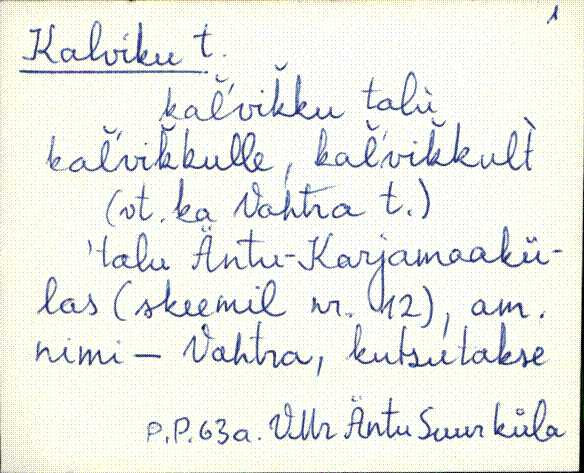 1
Kalviku t.
kal̆'vik̆ku talù
kal̆'vik̆kulle, kal̆'vik̆kult̀
(vt. ka Vahtra t.)
'talu Äntu-Karjamaakü-
las (skeemil nr. 12), am.
nimi – Vahtra, kutsutakse
P.P. 63 a. VMr Äntu Suurküla